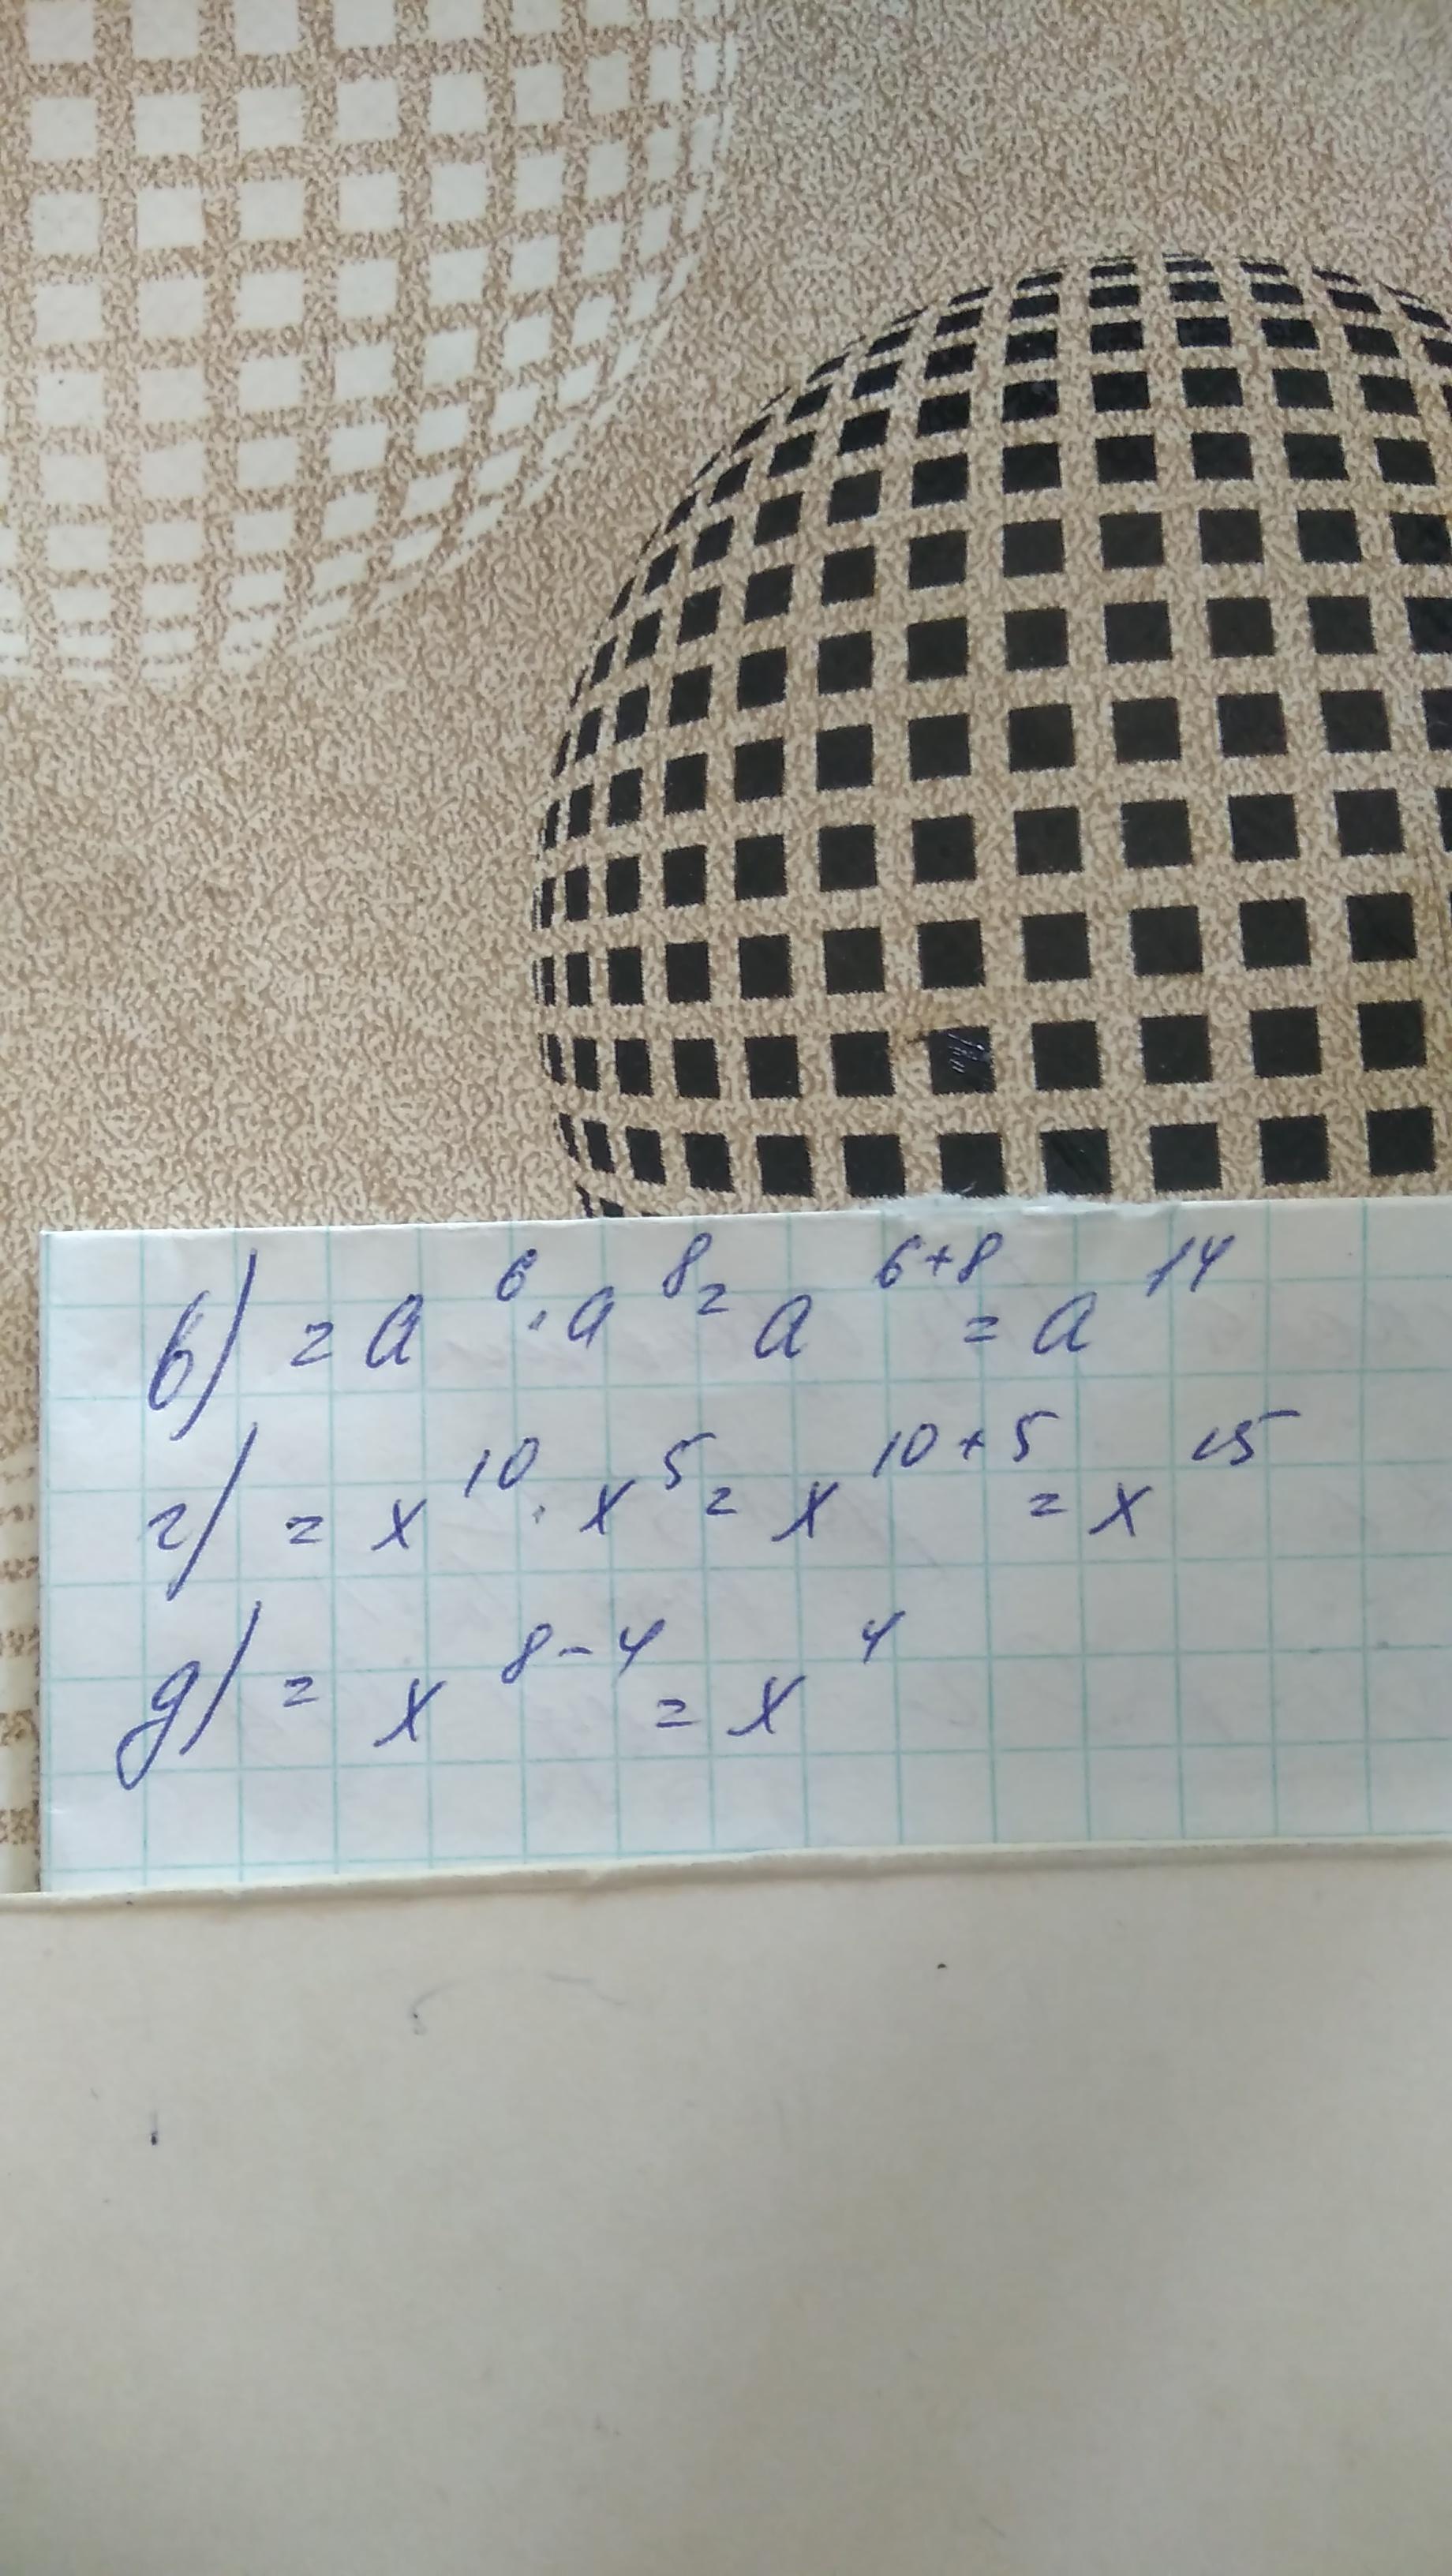 в) = a⁶ · a⁸ = a⁶⁺⁸ = a¹⁴
г) = x¹⁰ · x⁵ = x¹⁰⁺⁵ = x¹⁵
д) = x⁸⁻⁴ = x⁴